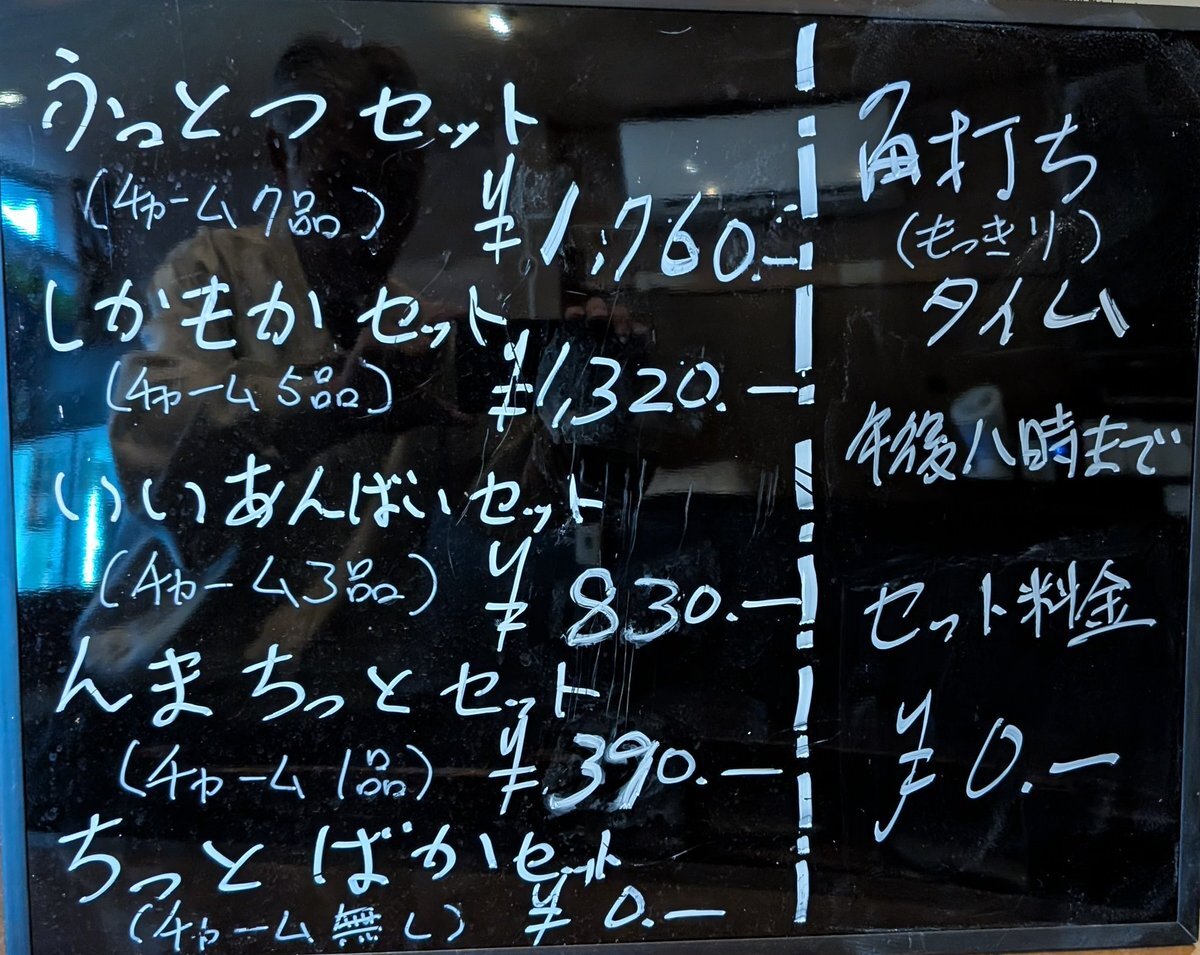 うっとつセット
(チャーム7品) ¥1,760.-
しかもかセット
(チャーム5品) ¥1,320.-
いいあんばいセット
(チャーム3品) ¥830.-
んまちっとセット
(チャーム1品) ¥390.-
ちっとばかセット
(チャーム無し) ¥0.-
角打ち
(もっきり)
タイム
午後八時まで
セット料金
¥0.-